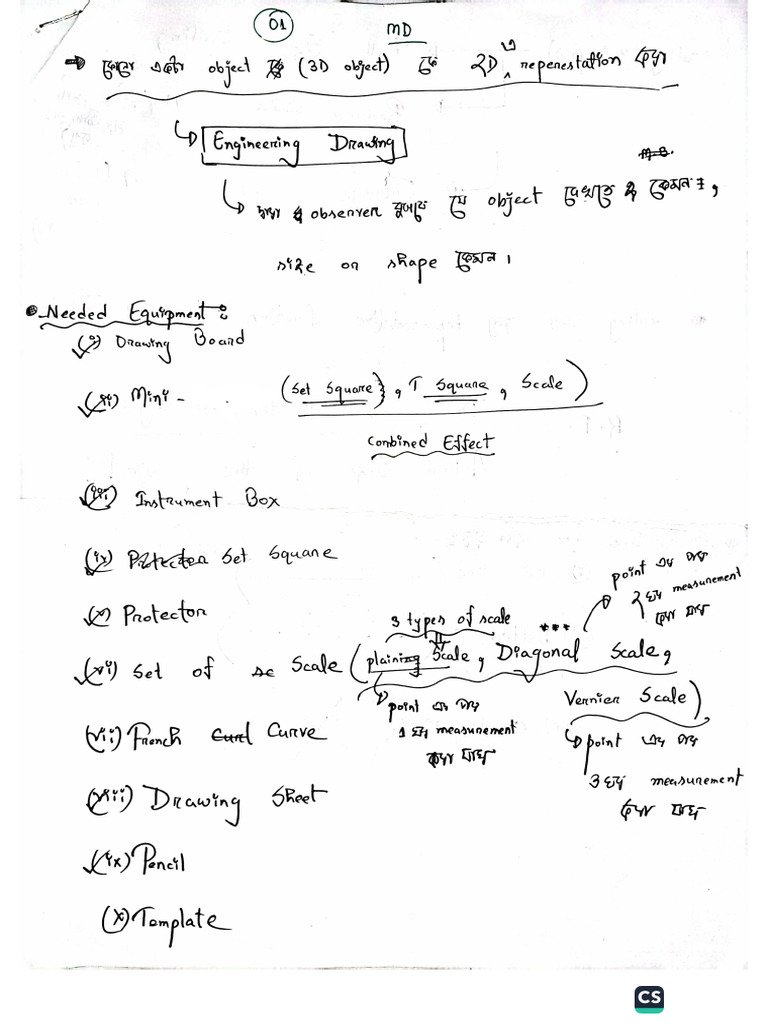 01
MD
→ কোনো একটা object (3D object) কে 2D তে repenestation করা
Engineering Drawing
দ্বারা observer বুঝবে যে object দেখতে কেমন,
size or shape কেমন।
Needed Equipment:
(i) Drawing Board
(ii) Mini - (Set Square), T Square, Scale)
Combined Effect
(iii) Instrument Box
(iv) Set Square
(v) Protector
3 types of scale ***
(vi) Set of Scale (plaining Scale, Diagonal Scale,
Vernier Scale)
point এর পর
1 ঘর measurement
করা যায়
point এর পর
2 ঘর measurement
করা যায়
point এর পর
3 ঘর measurement
করা যায়
(vii) French Curve
(viii) Drawing Sheet
(ix) Pencil
(x) Template
CS